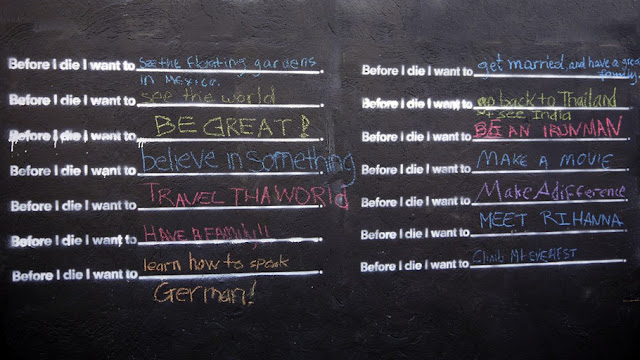 Before I die I want to See the floating gardens
in Mexico.
Before I die I want to see the world
Before I die I want to BE GREAT!
Before I die I want to believe in something
Before I die I want to TRAVEL THA WORLD
Before I die I want to HAVE A FAMILY!!
Before I die I want to learn how to speak
German!
Before I die I want to get married, and have a great
family!
Before I die I want to go back to Thailand
+ see India
Before I die I want to BE AN IRONMAN
Before I die I want to MAKE A MOVIE
Before I die I want to Make A difference
Before I die I want to MEET RIHANNA
Before I die I want to Climb Mt EVEREST